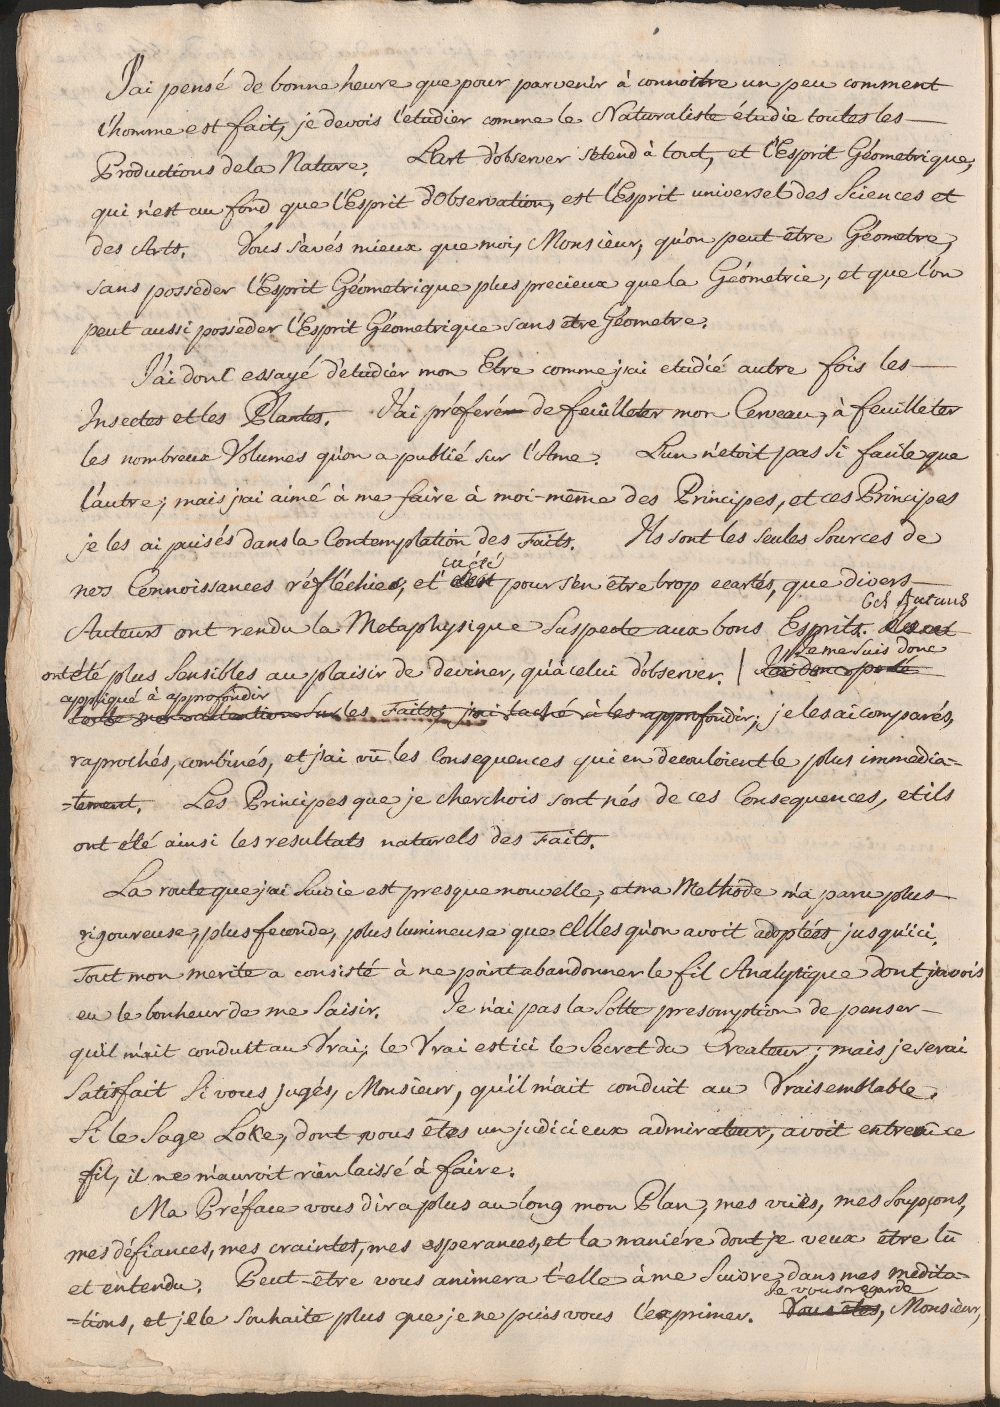 J'ai pensé de bonne heure que pour parvenir à connoitre un peu comment
l'homme est fait, je devois l'etudier comme le Naturaliste étudie toutes les
Productions de la Nature. L'art d'observer s'etend à tout, et l'Esprit Géometrique,
qui n'est au fond que l'Esprit d'Observation, est l'Esprit universel des Sciences et
des Arts. Vous savés mieux que moi, Monsieur, qu'on peut être Géometre,
sans posseder l'Esprit Géometrique plus precieux que la Géometrie, et que l'on
peut aussi posseder l'Esprit Géometrique sans être Géometre.
J'ai donc essayé d'etudier mon Etre comme j'ai etudié autre fois les
Insectes et les Plantes. J'ai préferé de feuilleter mon Cerveau, à feuilleter
les nombreux Volumes qu'on a publié sur l'Ame. L'un n'étoit pas si facile que
l'autre; mais j'ai aimé à me faire à moi-même des Principes, et ces Principes
je les ai puisés dans la Contemplation des Faits. Ils sont les seules Sources de
ç'a été
nos Connoissances réfléchies, et c'est pour s'en être trop ecartés, que divers
Ces Auteurs
Auteurs ont rendu la Metaphysique suspecte aux bons Esprits.
Je me suis donc
ont été plus sensibles au plaisir de deviner, qu'à celui d'observer. | J'ai donc porté
appliqué à approfondir
toute mon attention sur les Faits; j'ai taché à les approfondir; je les ai comparés,
raprochés, combinés, et j'ai vû les Consequences qui en decouloient le plus immedia=
=tement. Les Principes que je cherchois sont nés de ces Consequences, et ils
ont été ainsi les resultats naturels des Faits.
La route que j'ai suivie est presque nouvelle, et ma Methode m'a paru plus
rigoureuse, plus feconde, plus lumineuse que celles qu'on avoit adoptées jusqu'ici.
Tout mon merite a consisté à ne point abandonner le fil Analytique dont j'avois
eu le bonheur de me saisir. Je n'ai pas la sotte presomption de penser
qu'il m'ait conduit au Vrai; le Vrai est ici le Secret du Createur; mais je serai
satisfait si vous jugés, Monsieur, qu'il m'ait conduit au Vraisemblable.
Si le Sage Loke, dont vous êtes un judicieux admirateur, avoit entrevû ce
fil, il ne m'auroit rien laissé à faire.
Ma Préface vous dira plus au long mon Plan, mes vuës, mes soupçons,
mes défiances, mes craintes, mes esperances, et la maniére dont je veux être lû
et entendu. Peut-être vous animera t'elle à me suivre dans mes medita=
Je vous regarde
=tions, et je le souhaite plus que je ne puis vous l'exprimer. Vous êtes, Monsieur,